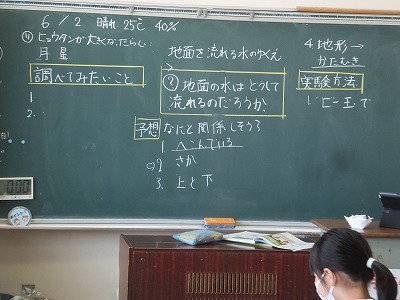 6/2 晴れ 25℃ 40%
④ヒョウタンが大きくなったらし:
月星
調べてみたいこと
1
2.
地面を流れる水のゆくえ
？地面の水はどうして
流れるのだろうか
予想 なにと関係しそう？
1 へこんでいる
2 さか
3. 上と下
4 地形→
かたむき
実験方法
1. ビー玉で
000